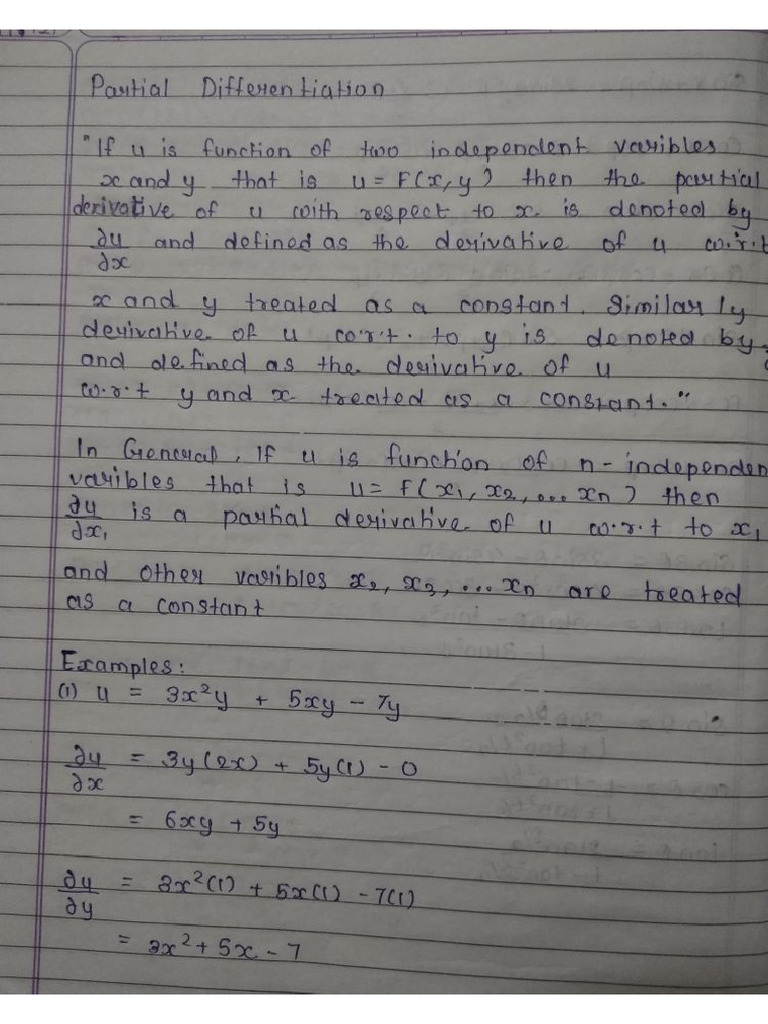 Partial Differentiation
"If u is function of two independent varibles
x and y that is u = F(x, y) then the partial
derivative of u with respect to x is denoted by
∂u/∂x and defined as the derivative of u w.r.t
x and y treated as a constant. Similarly
derivative of u w.r.t. to y is denoted by
and defined as the derivative of u
w.r.t y and x treated as a constant."
In General, If u is function of n-independen
varibles that is u = f(x₁, x₂, ... xn) then
∂u/∂x₁ is a partial derivative of u w.r.t to x₁
and other varibles x₂, x₃, ... xn are treated
as a constant
Examples:
(1) u = 3x²y + 5xy - 7y
∂u/∂x = 3y(2x) + 5y(1) - 0
= 6xy + 5y
∂u/∂y = 3x²(1) + 5x(1) - 7(1)
= 3x² + 5x - 7